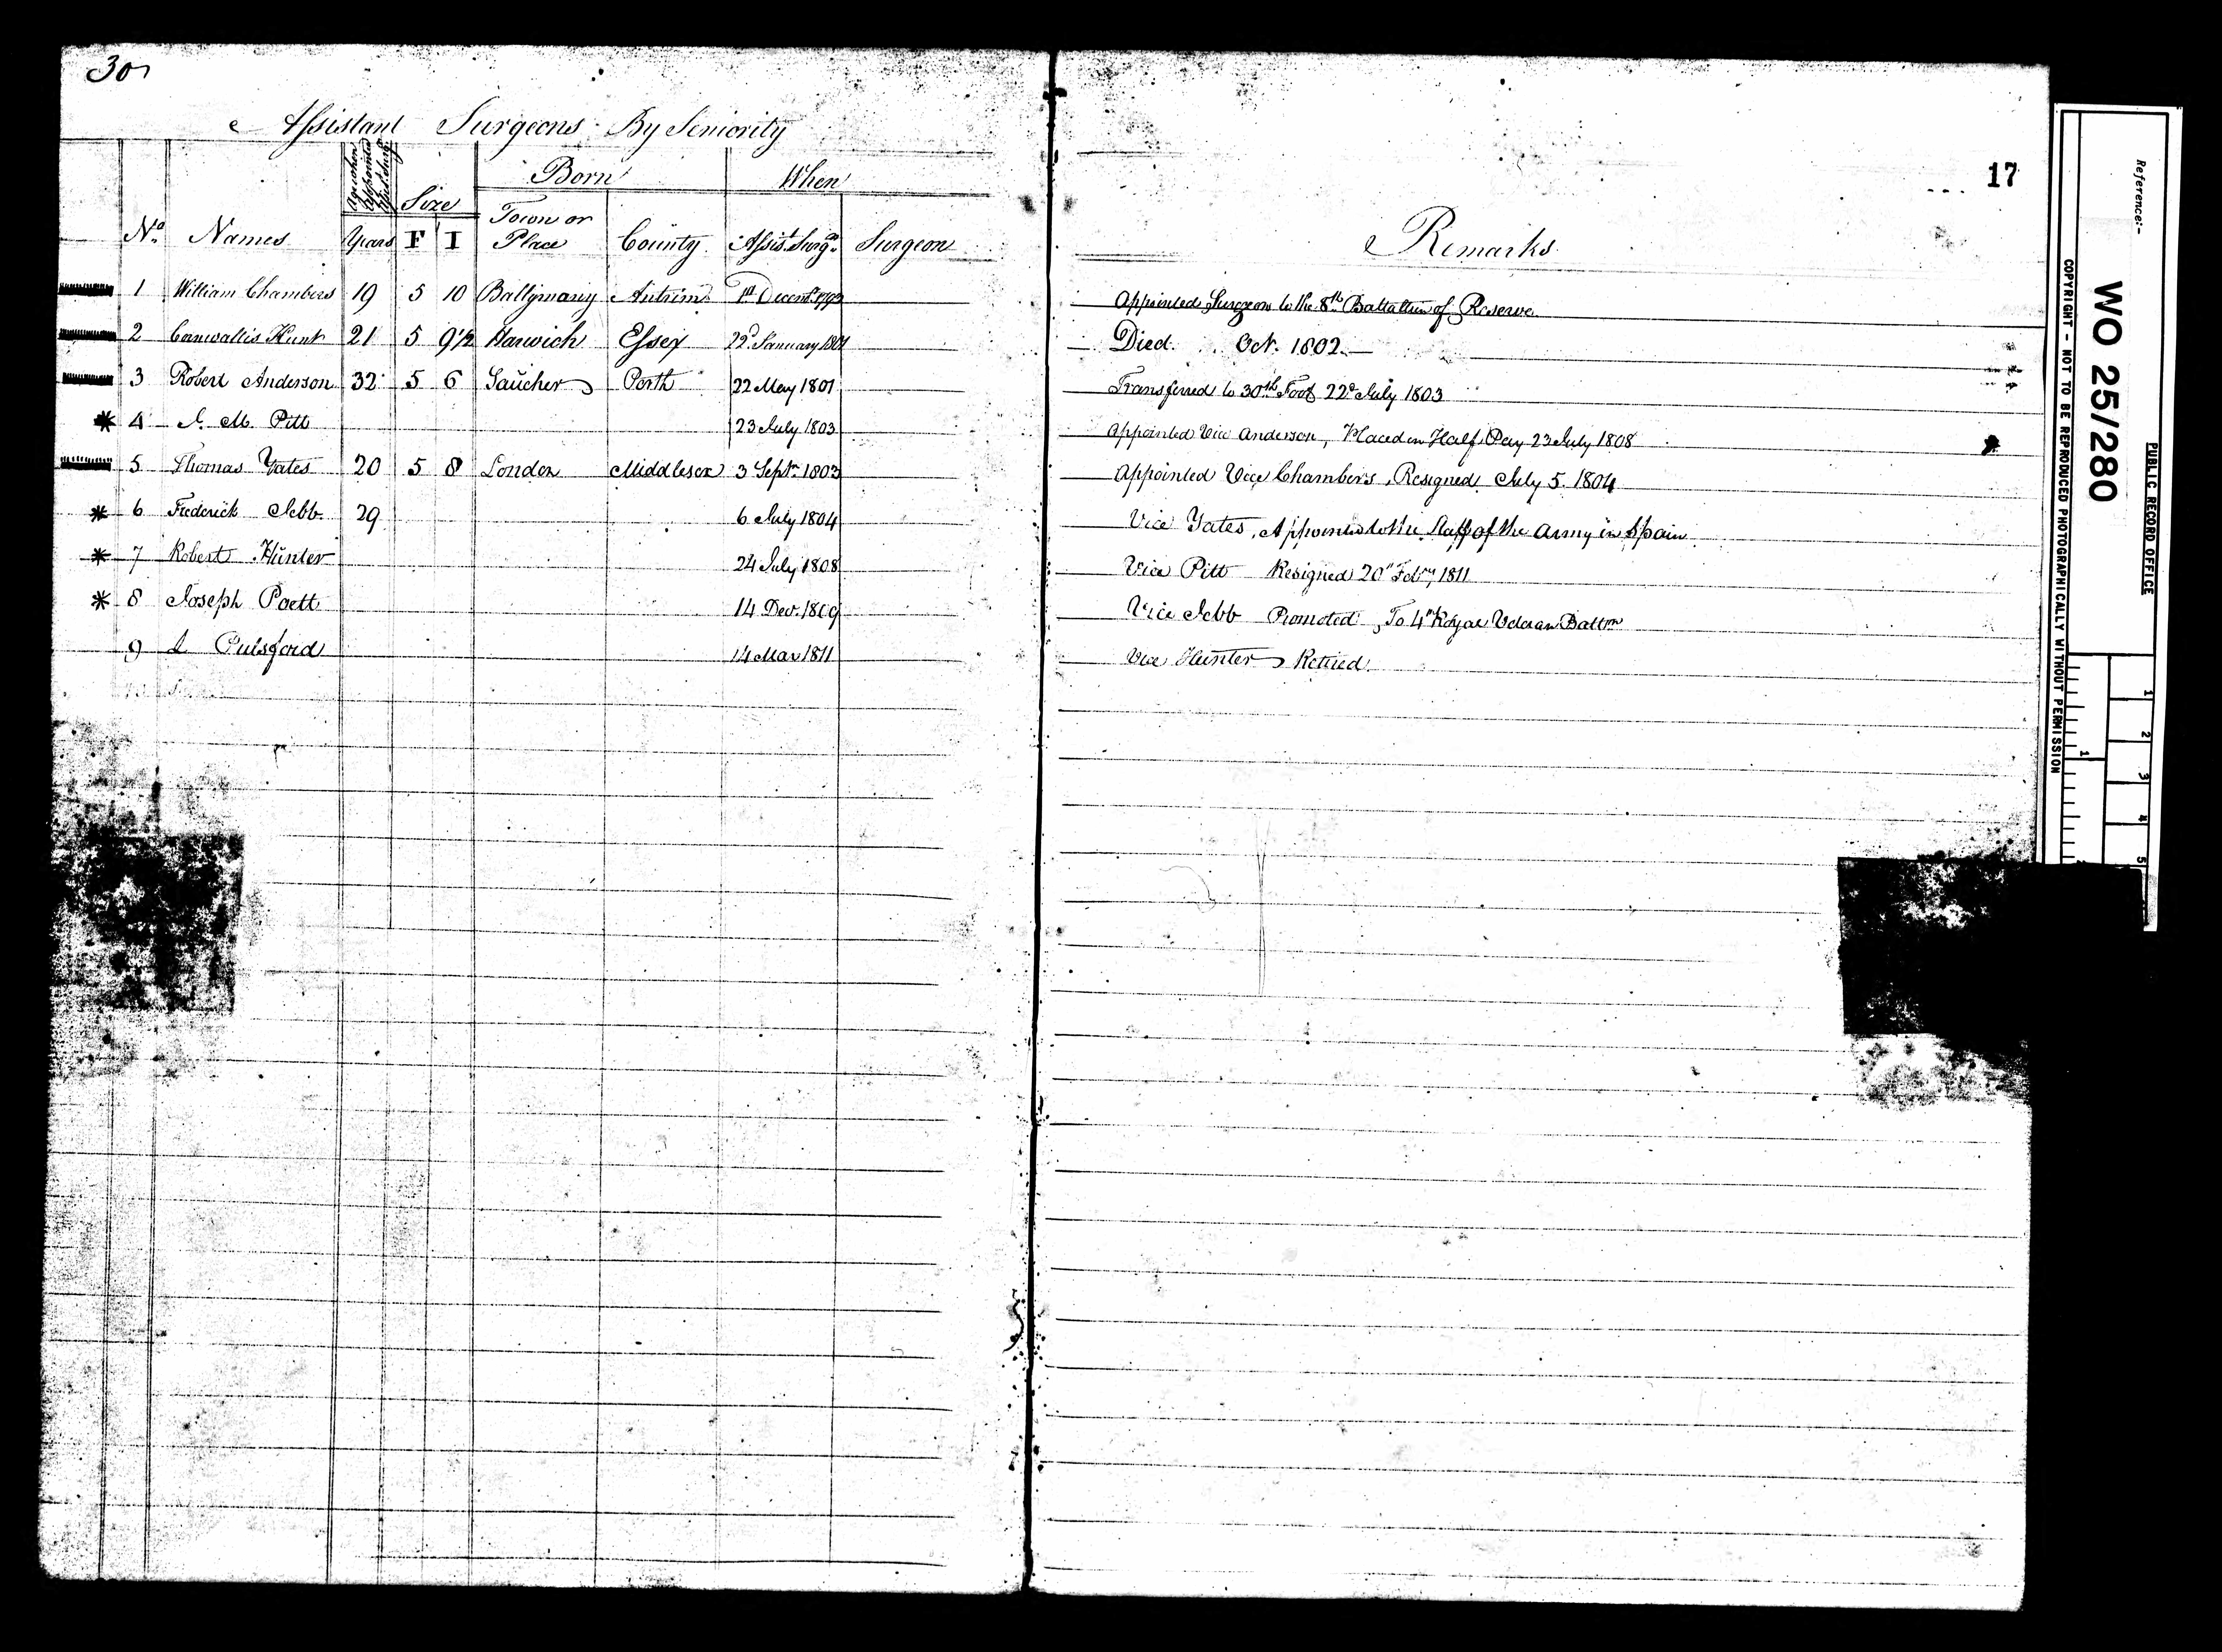 30
Assistant Surgeons By Seniority
Born When
Size
No. Names Years F I Town or Place County Assist. Surgn. Surgeon
1 William Chambers 19 5 10 Antrim 1st Decemr.
2 Cornwallis Hunt 21 5 9½ Harwich Essex 22d January 1801
3 Robert Anderson 32 5 6 Saucher Perth 22 May 1801
* 4 J. M. Pitt 23 July 1803
5 Thomas Yates 20 5 8 London Middlesex 3 Septr. 1803
* 6 Frederick Jebb 29 6 July 1804
* 7 Robert Hunter 24 July 1808
* 8 Joseph Poett 14 Dec. 1809
9 Pulsford 14 Mar 1811
17
Remarks
Appointed Surgeon to the 8th Battallion of Reserve
Died Oct. 1802
Transferred to 30th Foot 22d July 1803
Appointed Vice Anderson, Placed on Half Pay 23 July 1808
Appointed Vice Chambers, Resigned July 5. 1804
Vice Yates, Appointed to the Staff of the Army in Spain
Vice Pitt Resigned 20th Febry. 1811
Vice Jebb Promoted, To 4th Royal Veteran Battn
Vice Hunter Retired
Reference:-
PUBLIC RECORD OFFICE
WO 25/280
COPYRIGHT - NOT TO BE REPRODUCED PHOTOGRAPHICALLY WITHOUT PERMISSION
1 2 3 4 5
1 2